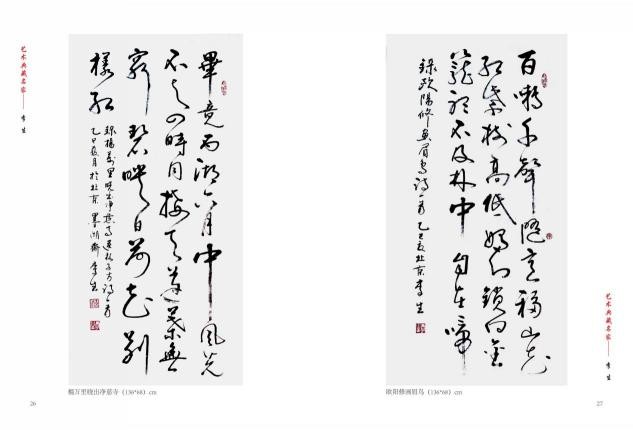 艺术典藏名家——李生
畢竟西湖六月中風光
不与四時同接天蓮葉無
窮碧映日荷花别
樣红
錄楊萬里曉出净慈寺送林子方詩一首
乙巳夏月於北京墨湖齋李生
楊万里晓出净慈寺（136*68）cm
26
百囀千聲隨意移山花
红紫樹高低始知鎖向金
籠聽不及林中自在啼
錄歐陽修画眉鳥詩一首乙巳夏北京李生
欧阳修画眉鸟（136*68）cm
艺术典藏名家——李生
27